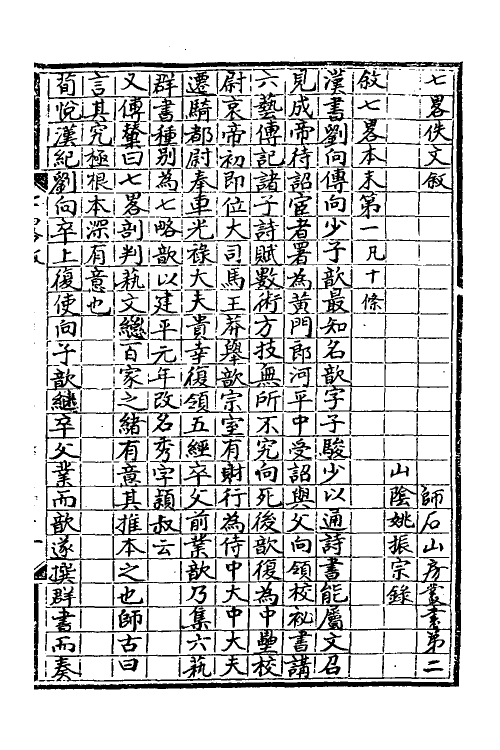 七畧佚文敘　師石山房叢書第二
山陰姚振宗錄
敘七畧本末第一凡十條
漢書劉向傳向少子歆最知名歆字子駿少以通詩書能屬文召
見成帝待詔宦者署為黃門郎河平中受詔與父向領校祕書講
六藝傳記諸子詩賦數術方技無所不究向死後歆復為中壘校
尉哀帝初即位大司馬王莽舉歆宗室有財行為侍中大中大夫
遷騎都尉奉車光祿大夫貴幸復領五經卒父前業歆乃集六蓺
群書種別為七略歆以建平元年改名秀字穎叔云
又傳贊曰七畧剖判蓺文總百家之緒有意其推本之也師古曰
言其究極根本深有意也
荀悅漢紀劉向卒上復使向子歆繼卒父業而歆遂撰群書而奏